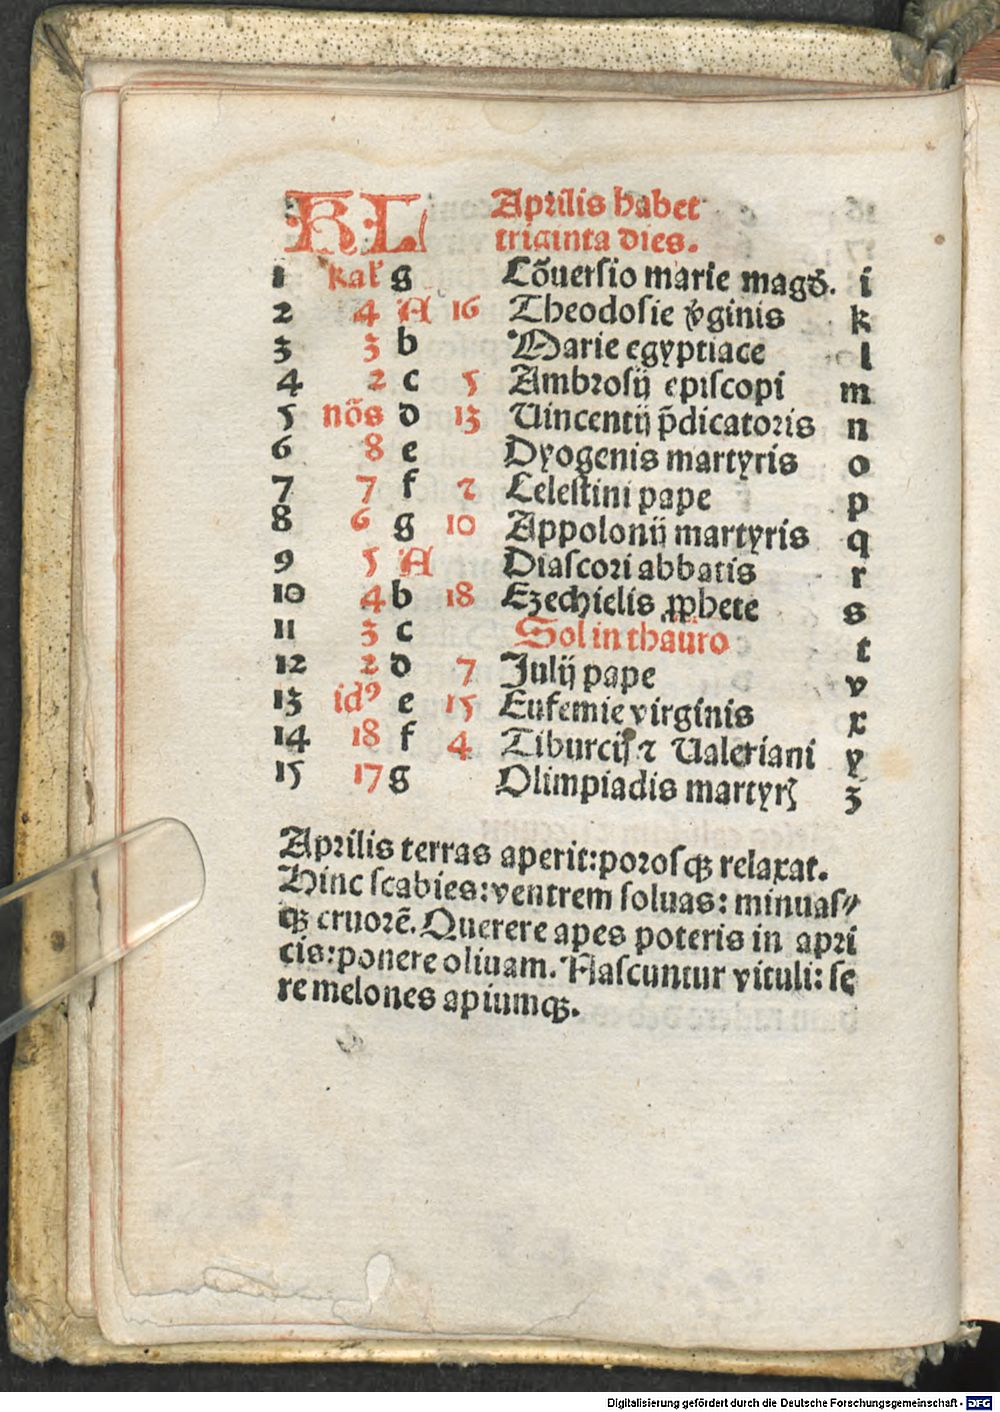 KL Aprilis habet
triginta dies.
1 kal̕ g Cõuersio marie magd̃. i
2 4 A 16 Theodosie v̕ginis k
3 3 b Marie egyptiace l
4 2 c 5 Ambrosij episcopi m
5 nõs d 13 Uincentij p̃dicatoris n
6 8 e Dyogenis martyris o
7 7 f 2 Celestini pape p
8 6 g 10 Appolonij martyris q
9 5 A Diascori abbatis r
10 4 b 18 Ezechielis ꝓphete s
11 3 c Sol in thauro t
12 2 d 7 Julij pape v
13 idꝰ e 15 Eufemie virginis x
14 18 f 4 Tiburcij ⁊ Ualeriani y
15 17 g Olimpiadis martyrꝭ z
Aprilis terras aperit: porosqꝫ relaxat.
Hinc scabies: ventrem soluas: minuas⸗
qꝫ cruorẽ. Querere apes poteris in apri
cis: ponere oliuam. Nascuntur vituli: se
re melones apiumqꝫ.
Digitalisierung gefördert durch die Deutsche Forschungsgemeinschaft - DFG